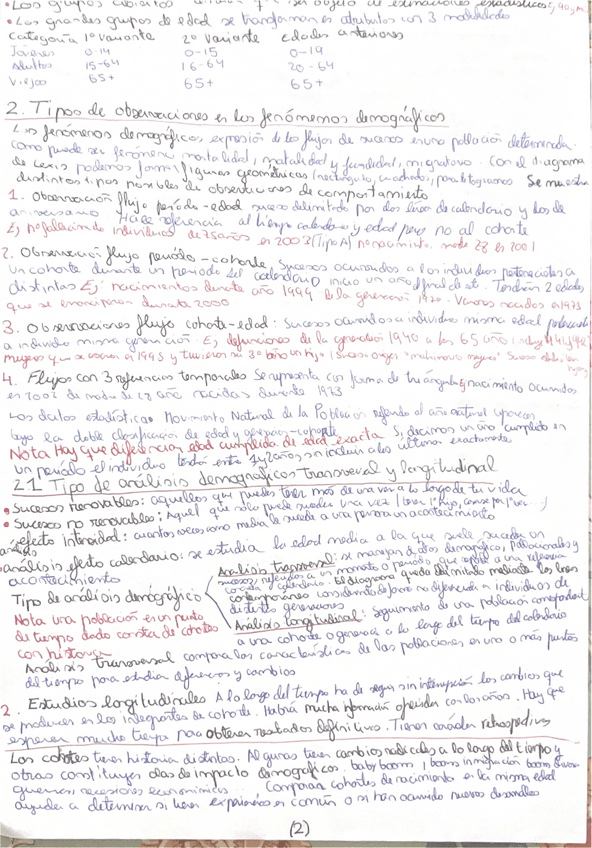 • Los grupos
• Los grandes grupos de edad se transforman en atributos con 3 modalidades
Categoría 1º variante 2º variante edades anteriores
Jóvenes 0-14 0-15 0-19
Adultos 15-64 16-64 20-64
Viejos 65+ 65+ 65+
2. Tipos de observaciones en los fenómenos demográficos
Los fenómenos demográficos, expresión de los flujos de sucesos en una población determinada.
como puede ser fenómeno mortalidad, natalidad y fecundidad, migratorio. Con el diagrama
de Lexis podemos formar figuras geométricas (rectángulo, cuadrado, paralelogramos. Se muestra
distintos tipos posibles de observaciones de comportamiento
1. Observación flujo período-edad suceso delimitado por dos líneas de calendario y dos de
aniversario Hace referencia al tiempo calendario y edad pero no al cohorte
Ej de individuos de 75 años en 2003 (Tipo A) 28 en 2001
2. Observación flujo período-cohorte. Sucesos ocurridos a los individuos pertenecientes a
un cohorte durante un período del calendario inicio un año y final de este. Tendrán 2 edades
distintas Ej nacimientos durante año 1994 de la generación 1970. Varones nacidos en 1973
que se emanciparon durante 2000
3. Observaciones flujo cohorte-edad: Sucesos ocurridos a individuos misma edad
a individuo misma generación Ej defunciones de la generación 1940 a los 65 años
mujeres que se casaron en 1995 y tuvieron
4. Flujos con 3 referencias temporales Se representa con forma de triángulo Ej nacimiento ocurridos
en 2002 de madre de 29 años nacidas durante 1973
Los datos estadísticos Movimiento Natural de la Población referido al año natural y aparecen
bajo la doble clasificación de edad y generación-cohorte
Nota Hay que diferenciar edad cumplida de edad exacta Si, decimos un año cumplido en
un período el individuo tendrá entre 1 y 2 años, sin incluir a los últimos exactamente
2.1 Tipo de análisis demográficos transversal y longitudinal
• Sucesos renovables: aquellos que puedes tener más de una vez a lo largo de tu vida
• Sucesos no renovables: Aquel que solo puede suceder una vez (tener 1º hijo, casarse por 1º vez...)
análisis efecto intensidad: cuantos sucesos como media le sucede a una persona un acontecimiento
análisis efecto calendario: se estudia la edad media a la que suele suceder un
acontecimiento
Análisis transversal: se manejan datos demográficos, poblacionales y
sucesos, referidos a un momento o período que a una referencia
calendario. El diagrama queda delimitado mediante las líneas
Tipo de análisis demográfico contemporáneo considerando no diferencia a individuos de
distintas generaciones
Nota una población en un punto
de tiempo dado consta de cohortes
con historia
Análisis longitudinal: seguimiento de una población correspondiente
a una cohorte o generación a lo largo del tiempo del calendario
Análisis transversal compara las características de las poblaciones en uno o más puntos
del tiempo para estudiar diferencias y cambios
2. Estudios longitudinales A lo largo del tiempo ha de seguir sin interrupción los cambios que
se producen en los integrantes de cohorte. Habrá mucha información ofrecida con los años. Hay que
esperar mucho tiempo para obtener resultados definitivos. Tienen carácter retrospectivo
Los cohortes tienen historia distintas. Algunas tienen cambios radicales a lo largo del tiempo y
otras constituyen olas de impacto demográficos. baby boom, boom inmigración
guerras, recesiones económicas... Comparar cohortes de nacimiento en la misma edad
ayudar a determinar si tienen experiencias en común o si han ocurrido nuevos desarrollos
(2)